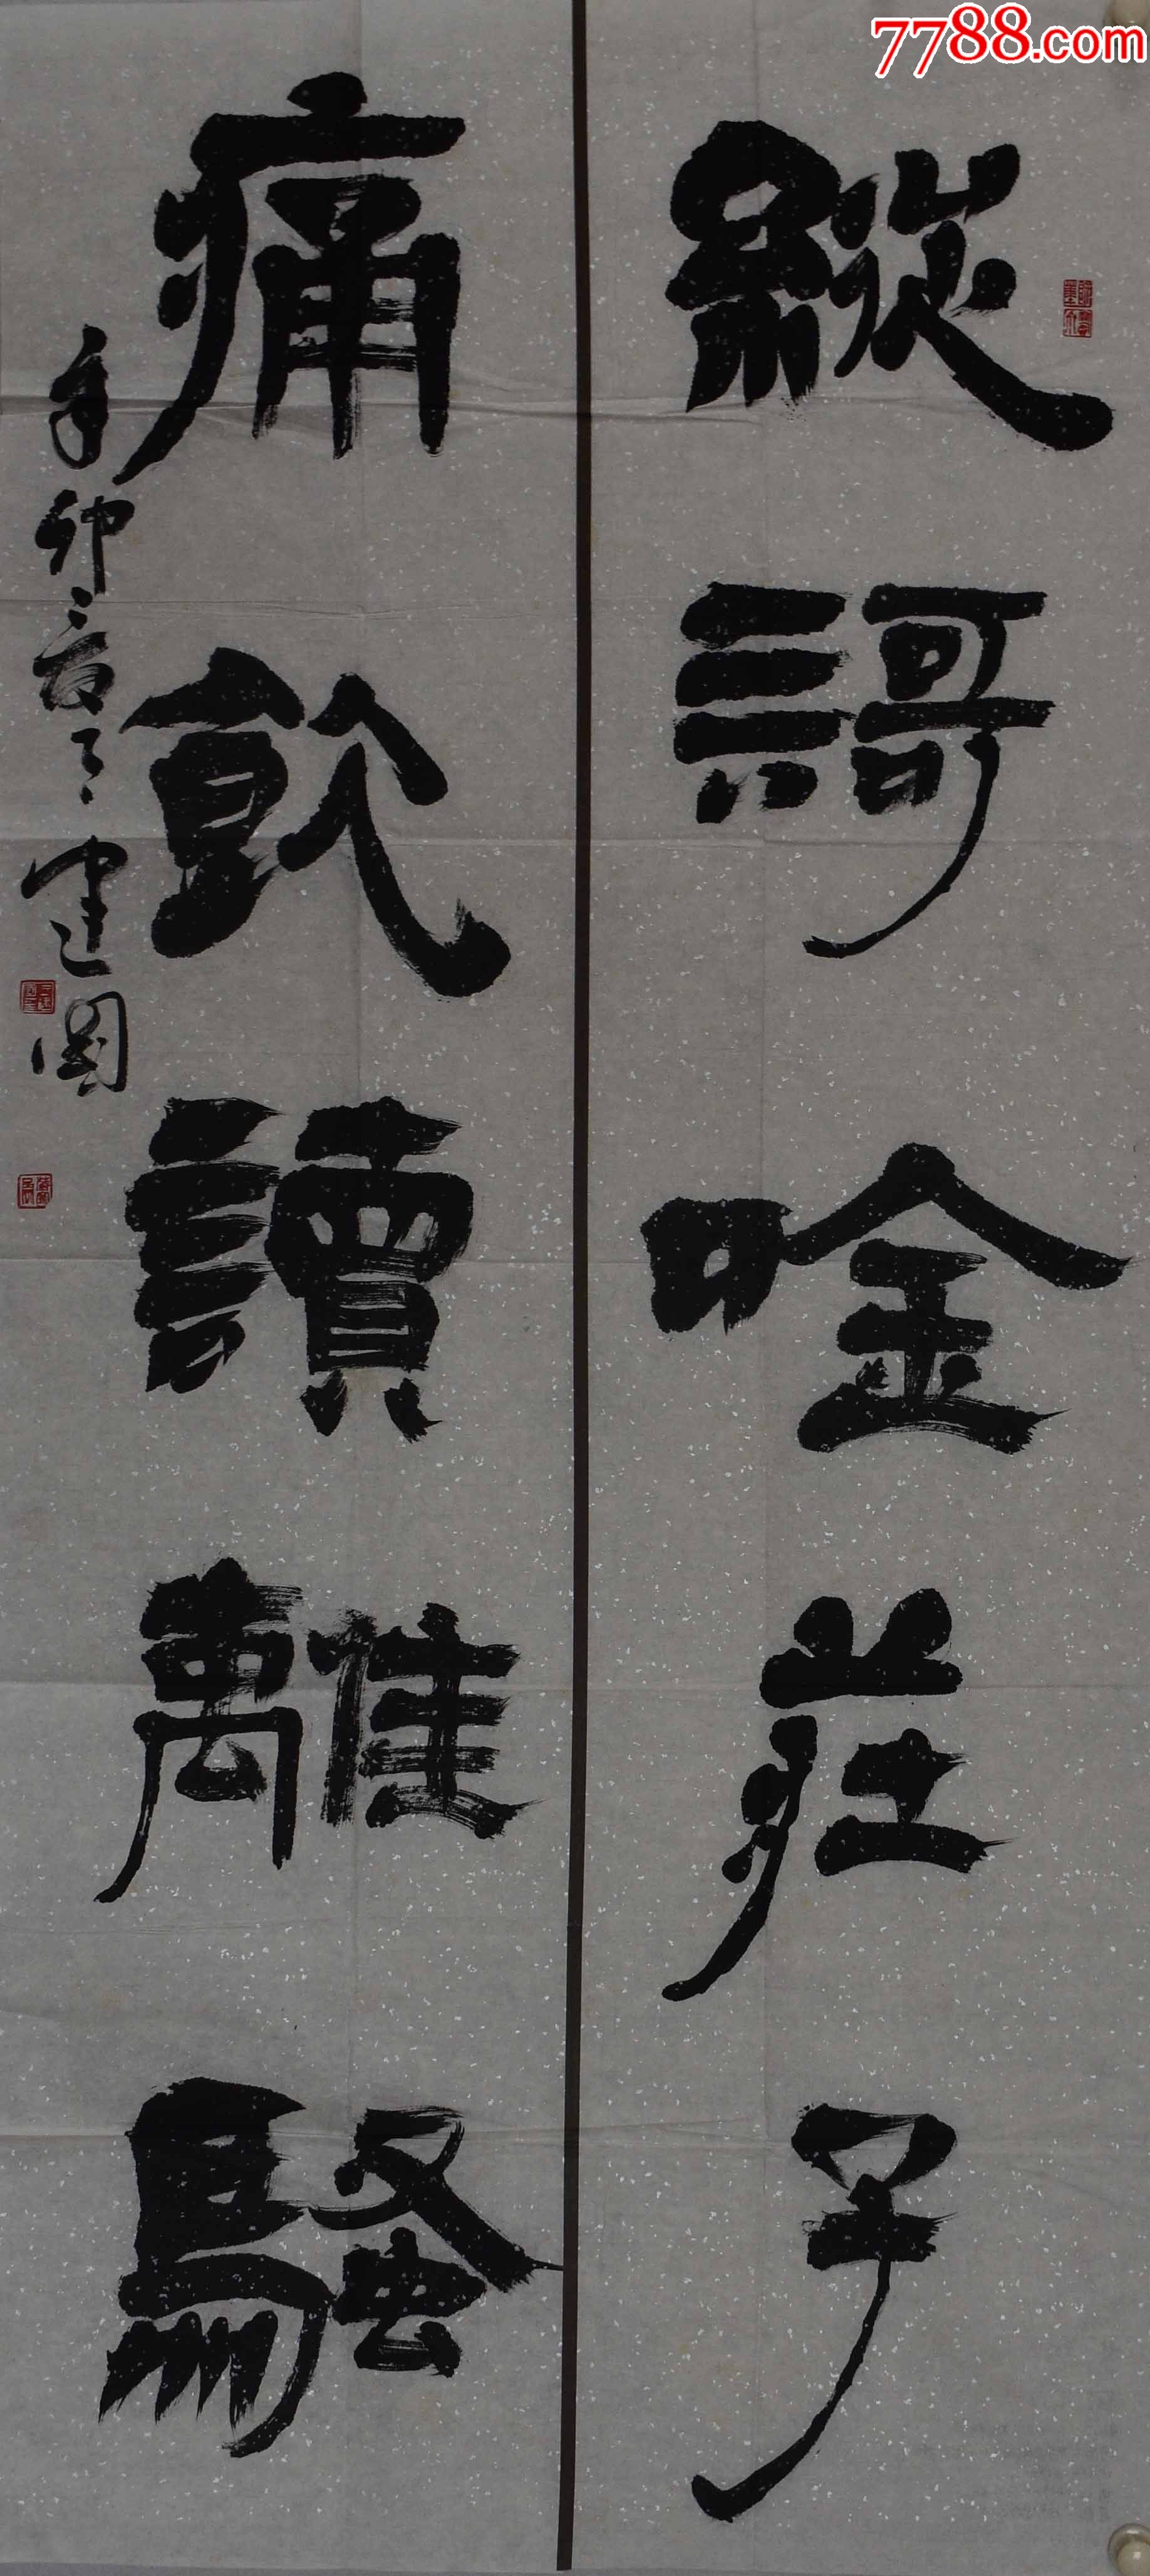 7788.com
縱謌唫莊子
痛飲讀離騷
辛卯夏王建國